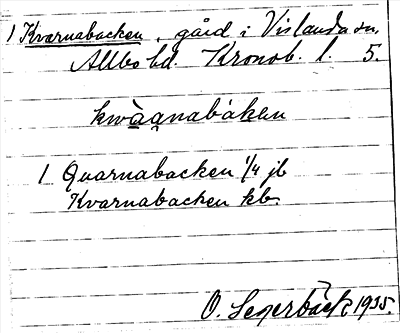 1 Kvarnabacken, gård i Vislanda sn,
Allbo hd. Kronob. l. 5.
kwàanabàken
1 Quarnabacken 1/4 jb
Kvarnabacken kb.
O. Segerbäck 1935.